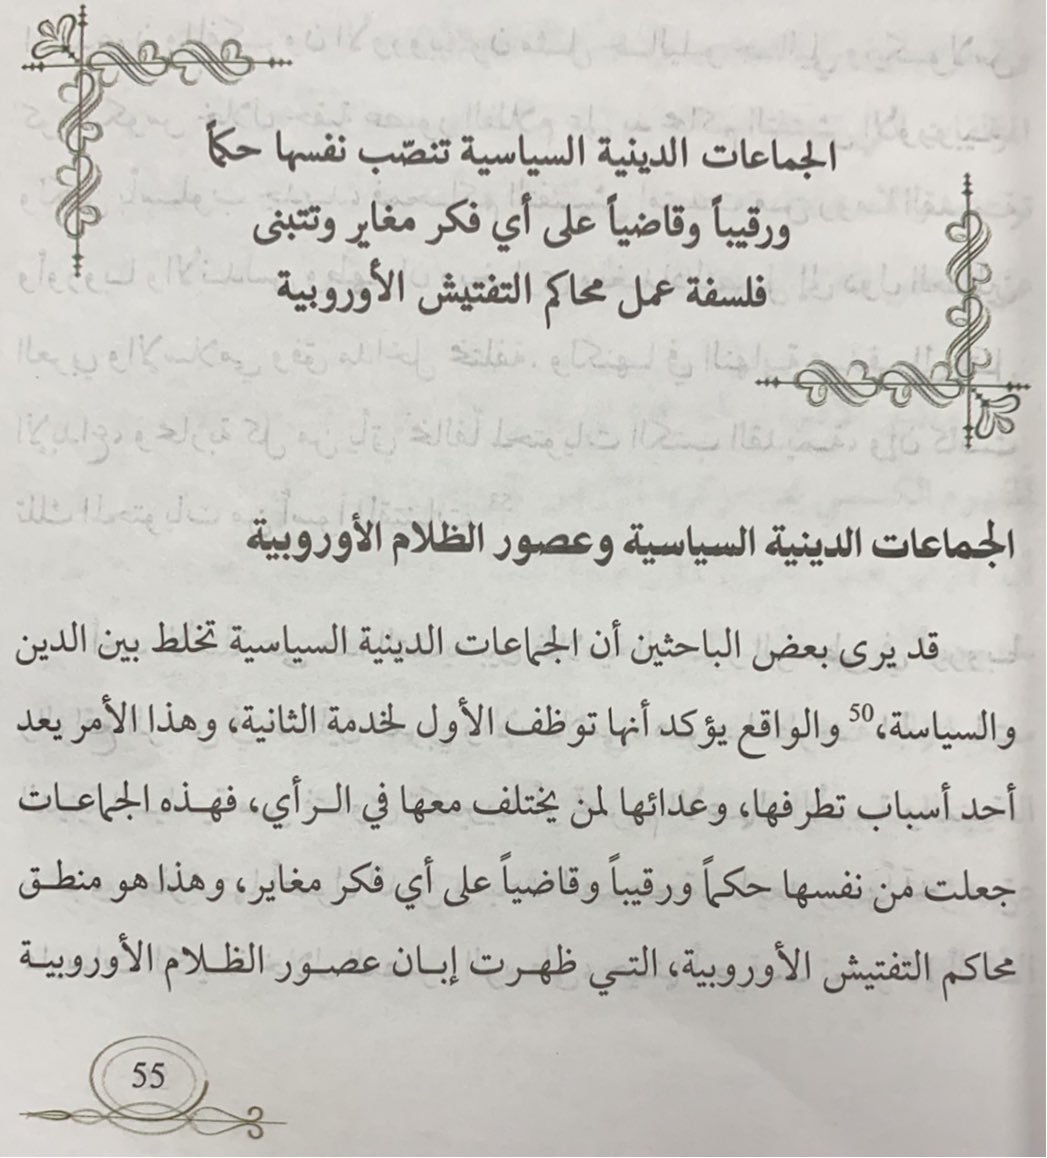 الجماعات الدينية السياسية تنصّب نفسها حكماً
ورقيباً وقاضياً على أي فكر مغاير وتتبنى
فلسفة عمل محاكم التفتيش الأوروبية
الجماعات الدينية السياسية وعصور الظلام الأوروبية
قد يرى بعض الباحثين أن الجماعات الدينية السياسية تخلط بين الدين
والسياسة،50 والواقع يؤكد أنها توظف الأول لخدمة الثانية، وهذا الأمر يعد
أحد أسباب تطرفها، وعدائها لمن يختلف معها في الـرأي، فهـذه الجماعـات
جعلت من نفسها حكماً ورقيباً وقاضياً على أي فكر مغاير، وهذا هو منطـق
محاكم التفتيش الأوروبية، التـي ظهـرت إبـان عصـور الظـلام الأوروبيـة
55